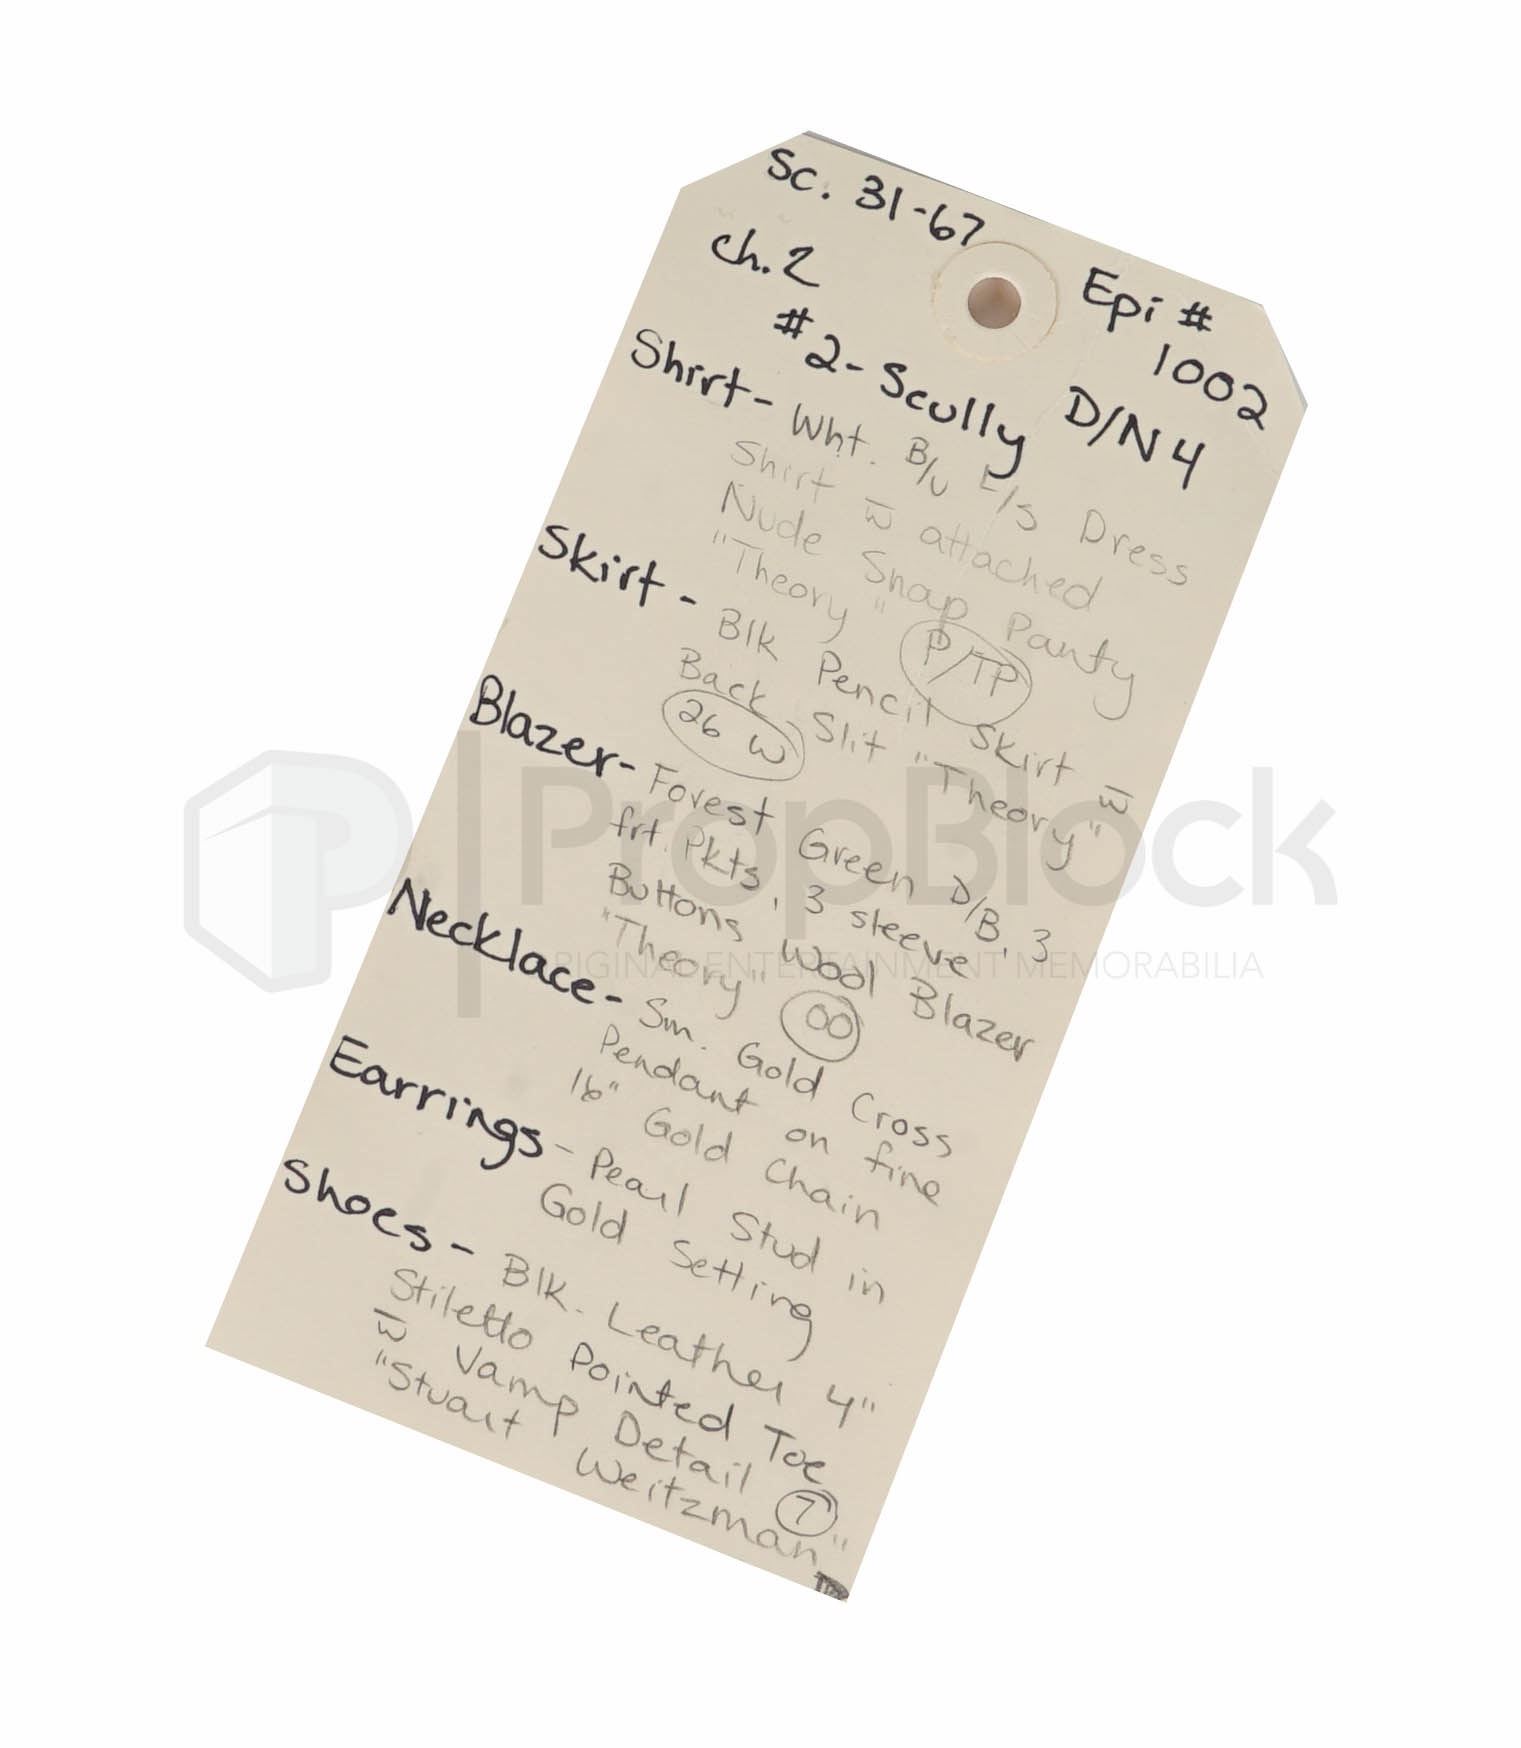 Sc. 31-67
Ch. 2
Epi #
1002
#2- Scully
D/N 4
Shirt- Wht. B/U L/S Dress
Shirt w̄ attached
Nude Snap Panty
"Theory" P/TP
Skirt - Blk Pencil Skirt w̄
Back Slit "Theory"
26 W
Blazer- Forest Green D/B, 3
frt. Pkts, 3 sleeve
Buttons Wool Blazer
"Theory" 00
Necklace- Sm. Gold Cross
Pendant on fine
16" Gold Chain
Earrings - Pearl Stud in
Gold Setting
Shoes - Blk. Leather 4"
Stiletto Pointed Toe
w̄ Vamp Detail 7
"Stuart Weitzman"
PropBlock
ORIGINAL ENTERTAINMENT MEMORABILIA